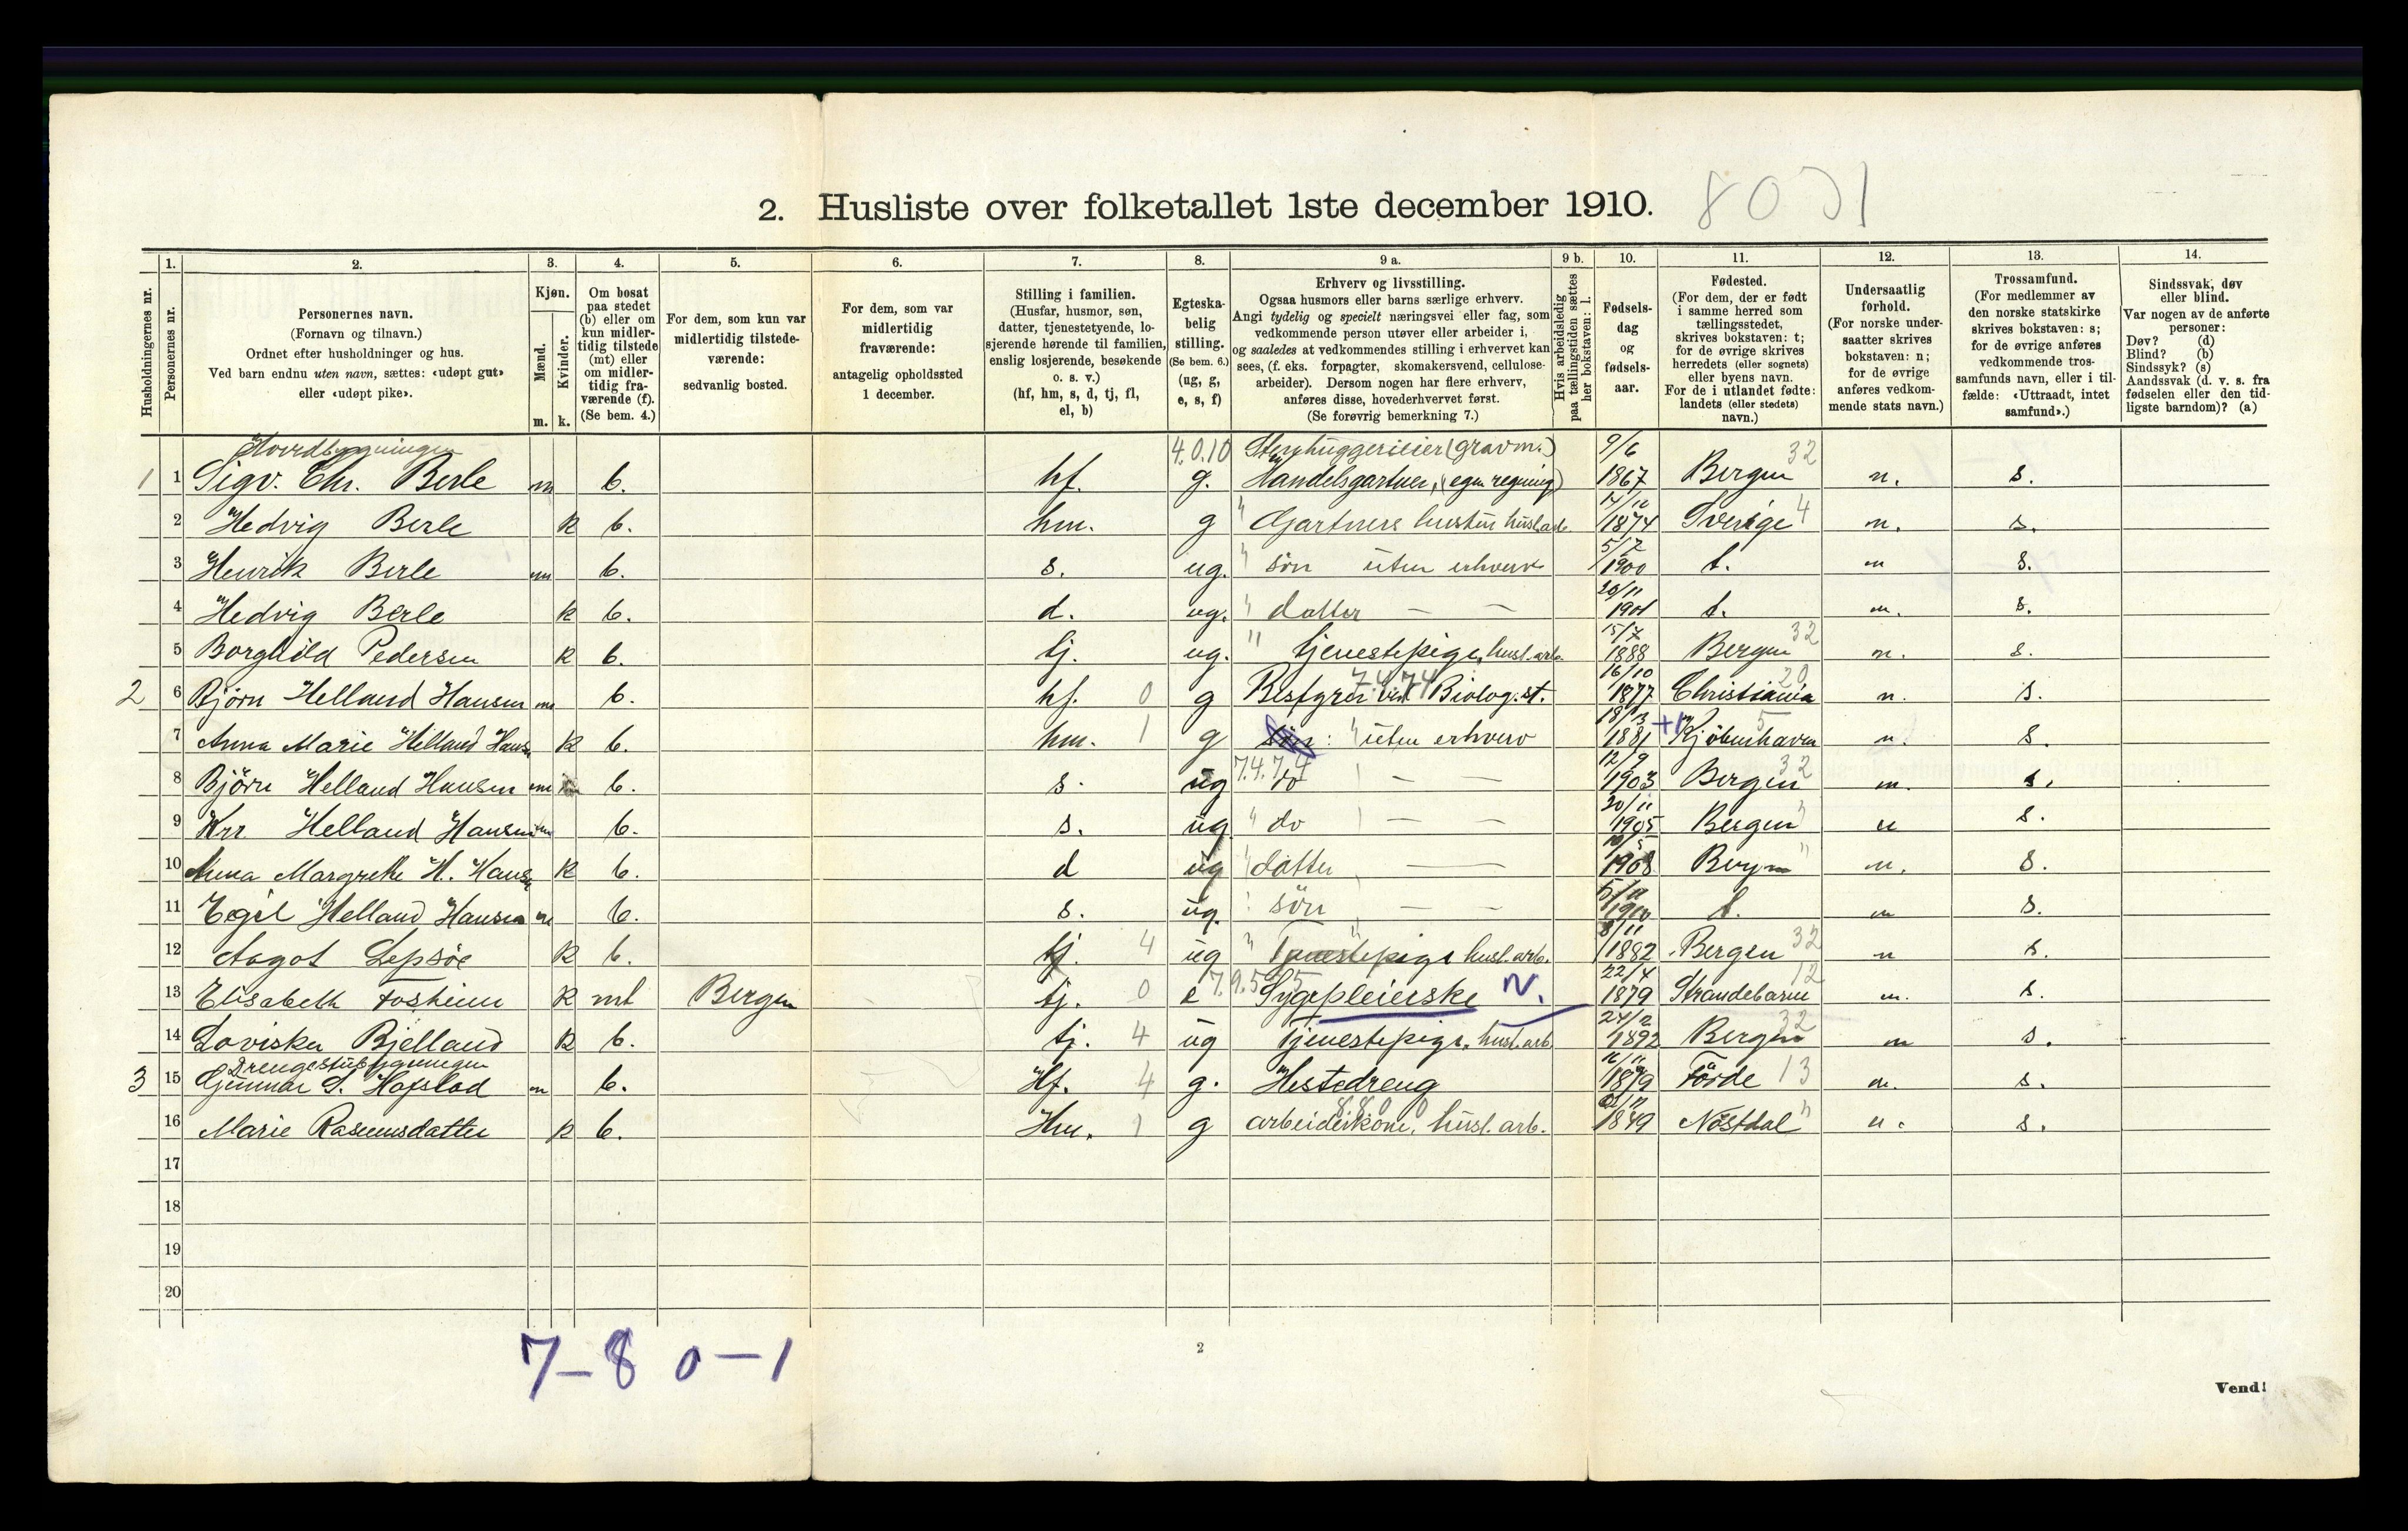 2. Husliste over folketallet 1ste december 1910.
Husholdningernes nr.
1. Personernes nr.
2. Personernes navn.
(Fornavn og tilnavn.)
Ordnet efter husholdninger og hus.
Ved barn endnu uten navn, sættes: «udøpt gut»
eller «udøpt pike».
3. Kjøn.
Mænd. Kvinder.
m. k.
4. Om bosat
paa stedet
(b) eller om
kun midler-
tidig tilstede
(mt) eller
om midler-
tidig fra-
værende (f).
(Se bem. 4.)
5. For dem, som kun var
midlertidig tilstede-
værende:
sedvanlig bosted.
6. For dem, som var
midlertidig
fraværende:
antagelig opholdssted
1 december.
7. Stilling i familien.
(Husfar, husmor, søn,
datter, tjenestetyende, lo-
sjerende hørende til familien,
enslig losjerende, besøkende
o. s. v.)
(hf, hm, s, d, tj, fl,
el, b)
8. Egteska-
belig
stilling.
(Se bem. 6.)
(ug, g,
e, s, f)
9 a. Erhverv og livsstilling.
Ogsaa husmors eller barns særlige erhverv.
Angi tydelig og specielt næringsvei eller fag, som
vedkommende person utøver eller arbeider i,
og saaledes at vedkommendes stilling i erhvervet kan
sees, (f. eks. forpagter, skomakersvend, cellulose-
arbeider). Dersom nogen har flere erhverv,
anføres disse, hovederhvervet først.
(Se forøvrig bemerkning 7.)
9 b. Hvis arbeidsledig
paa tællingstiden sættes
her bokstaven: l.
10. Fødsels-
dag
og
fødsels-
aar.
11. Fødested.
(For dem, der er født
i samme herred som
tællingsstedet,
skrives bokstaven: t;
for de øvrige skrives
herredets (eller sognets)
eller byens navn.
For de i utlandet fødte:
landets (eller stedets)
navn.)
12. Undersaatlig
forhold.
(For norske under-
saatter skrives
bokstaven: n;
for de øvrige
anføres vedkom-
mende stats navn.)
13. Trossamfund.
(For medlemmer av
den norske statskirke
skrives bokstaven: s;
for de øvrige anføres
vedkommende tros-
samfunds navn, eller i til-
fælde: «Uttraadt, intet
samfund».)
14. Sindssvak, døv
eller blind.
Var nogen av de anførte
personer:
Døv? (d)
Blind? (b)
Sindssyk? (s)
Aandssvak (d. v. s. fra
fødselen eller den tid-
ligste barndom)? (a)
Hovedbygningen 4.0.10 Stenhuggerieier (gravm.) 9/6
1 1 Sigv. Chr. Berle m b. hf. g. Handelsgartner, (egen regning) 1867 Bergen 32 n. s.
2 Hedvig Berle k b. hm. g " Gartners hustru husl.arb 1874 Sverige 4 n. s.
5/7
3 Henrik Berle m b. s. ug. " søn uten erhverv 1900 t. n s.
20/11
4 Hedvig Berle k b. d. ug. " datter — — 1901 t. n. s.
15/7
5 Borghild Pedersen k b. tj. ug. " tjenestepige, husl. arb. 1888 Bergen 32 n. s.
16/10
2 6 Bjørn Helland Hansen m b. hf. 0 g Bestyrer ved Biolog. st. 7.4.74 1877 Christiania 20 n. s.
7 Anna Marie Helland Hansen k b. hm. 1 g søn: " uten erhverv 1881 Kjøbenhavn 5 n. s.
7.4.74 12/9
8 Bjørn Helland Hansen m b. s. ug do — — 1903 Bergen 32 n. s.
20/11
9 Helland Hansen m b. s. ug. " do — — 1905 Bergen " n s.
10 Anna Margrethe H. Hansen k b. d ug " datter — 1908 Bergen " n. s.
11 Egil Helland Hansen m b. s. ug. søn — — 1910 t. n s.
8/11
12 Aagot Lepsøe k b. tj. 4 ug " Tjenestepige husl. arb. 1882 Bergen 32 n s.
22/4
13 Elisabeth Foshein k mt Bergen tj. 0 e 7.9.55 Sygepleierske N. 1879 Strandebarm 12 n. s.
24/2
14 Loviska Bjelland k b. tj. 4 ug Tjenestepige, husl. arb 1892 Bergen 32 n s.
Drengestubygningen
3 15 Gunnar S. Hafstad m b. Hf. 4 g. Hestedreng 1879 Førde 13 n. s.
16 Marie Rasmusdatter k b. Hm. 1 g arbeiderkone, husl. arb. 1849 Nøstdal " n. s.
17
18
19
20
7-8 0-1
2
Vend!